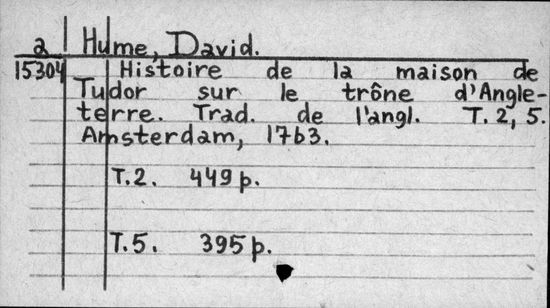 a Hume, David.
15304 Histoire de la maison de
Tudor sur le trône d'Angle-
terre. Trad. de l'angl. T. 2, 5.
Amsterdam, 1763.
T.2. 449 p.
T.5. 395 p.